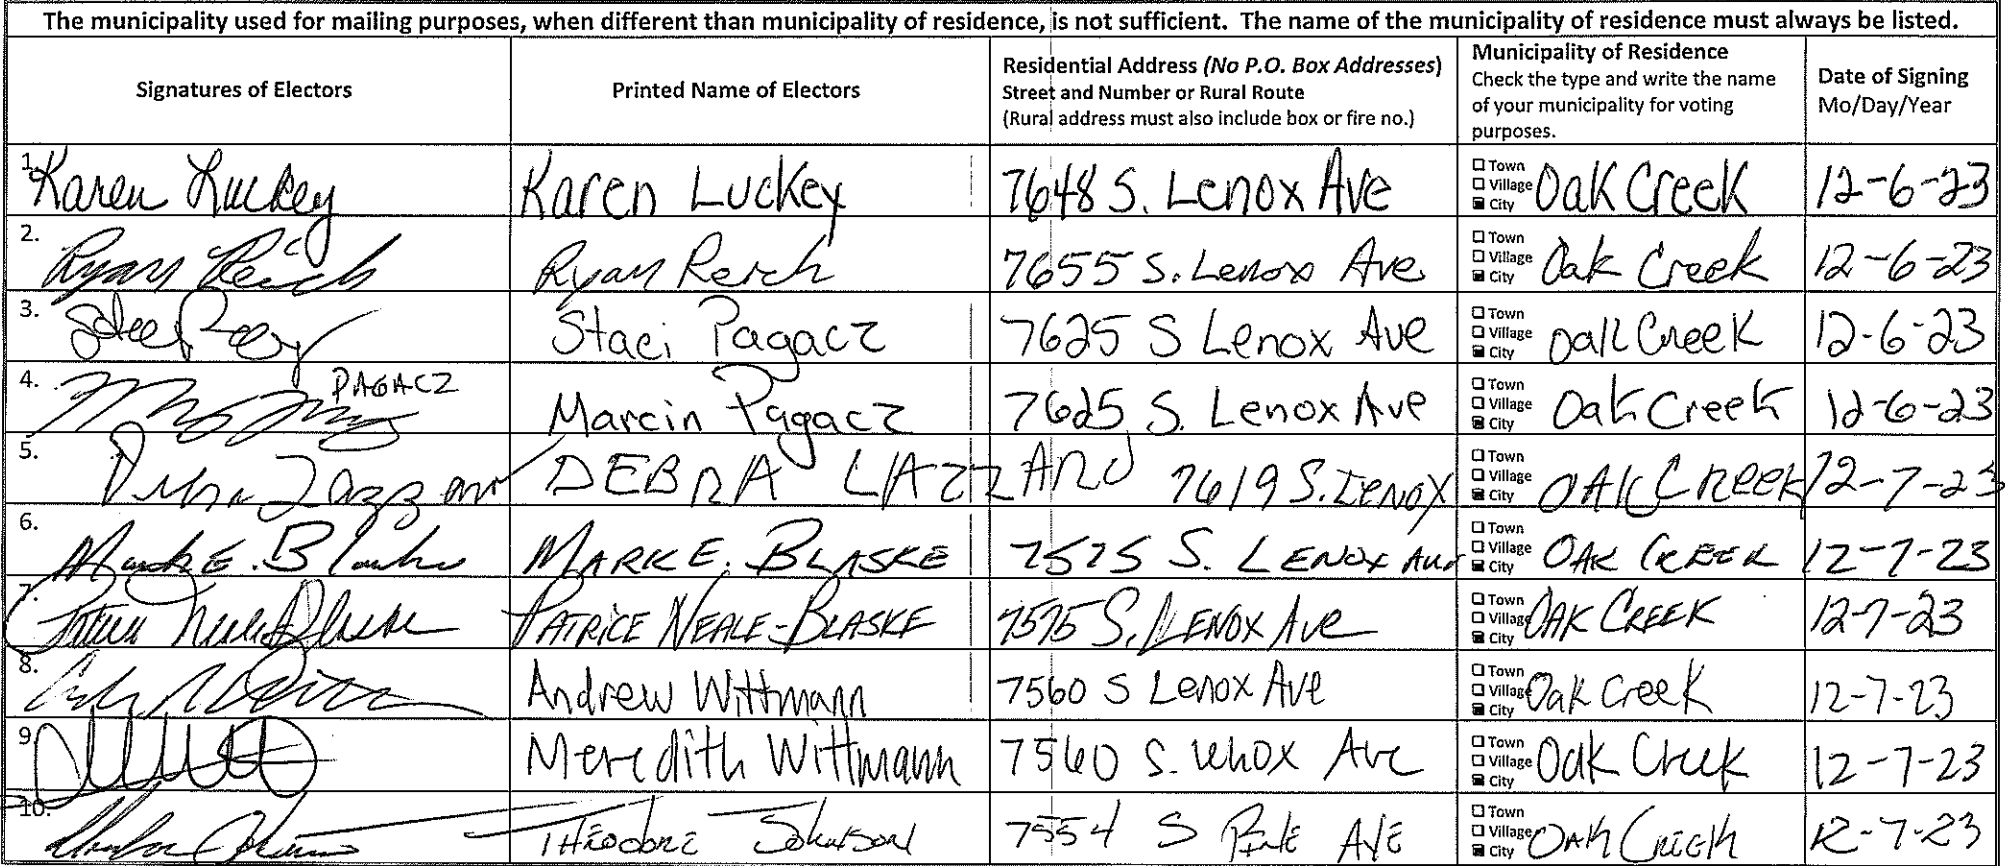 The municipality used for mailing purposes, when different than municipality of residence, is not sufficient. The name of the municipality of residence must always be listed.
Signatures of Electors
Printed Name of Electors
Residential Address (No P.O. Box Addresses)
Street and Number or Rural Route
(Rural address must also include box or fire no.)
Municipality of Residence
Check the type and write the name
of your municipality for voting
purposes.
Date of Signing
Mo/Day/Year
1. Karen Luckey Karen Luckey 7648 S. Lenox Ave ☐ Town ☐ Village ☒ City Oak Creek 12-6-23
2. Ryan Reich Ryan Reich 7655 S. Lenox Ave ☐ Town ☐ Village ☒ City Oak Creek 12-6-23
3. Staci Pagacz 7625 S Lenox Ave ☐ Town ☐ Village ☒ City Oak Creek 12-6-23
4. PAGACZ Marcin Pagacz 7625 S. Lenox Ave ☐ Town ☐ Village ☒ City Oak Creek 12-6-23
5. Debra Lazzaro DEBRA LAZZARO 7619 S. LENOX ☐ Town ☐ Village ☒ City OAK CREEK 12-7-23
6. Mark E. Blaske MARK E. BLASKE 7575 S. LENOX AVE ☐ Town ☐ Village ☒ City OAK CREEK 12-7-23
7. Patrice Neale-Blaske PATRICE NEALE-BLASKE 7575 S. LENOX AVE ☐ Town ☐ Village ☒ City OAK CREEK 12-7-23
8. Andrew Wittmann 7560 S Lenox Ave ☐ Town ☐ Village ☒ City Oak Creek 12-7-23
9. Meredith Wittmann 7560 S. Lenox Ave ☐ Town ☐ Village ☒ City Oak Creek 12-7-23
10. THEODORE JOHNSON 7554 S AVE ☐ Town ☐ Village ☒ City OAK CREEK 12-7-23